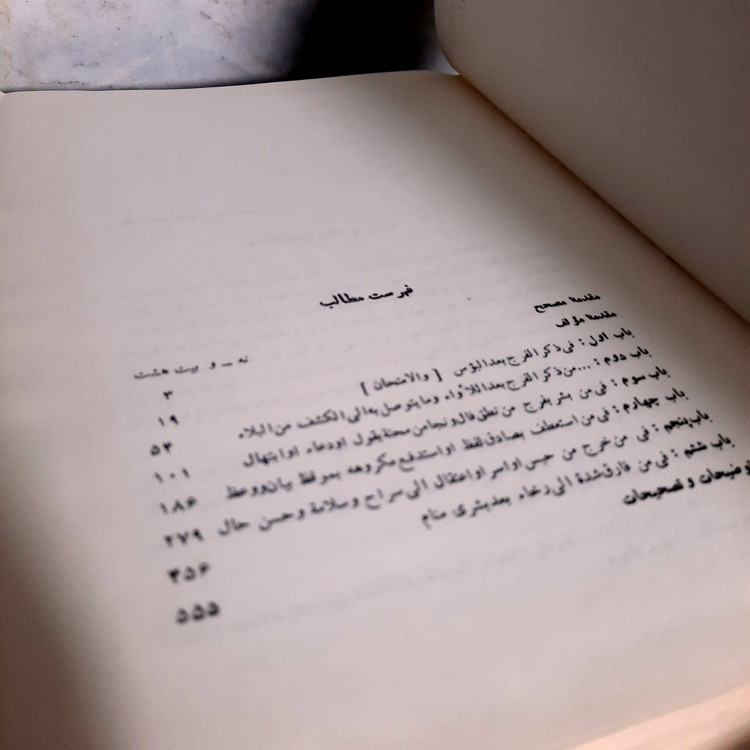 فهرست مطالب
مقدمهٔ مصحح نه ـ و بیت هشت
مقدمهٔ مؤلف ۳
باب اول : فی ذکر الفرج بعد البؤس [ والامتحان ] ۱۹
باب دوم : ... من ذکر الفرج بعد اللأواء وما یتوصل به الی الکشف من البلاء ۵۳
باب سوم : فی من بشر بفرج من نطق فال و نجا من محنة بقول او دعاء او ابتهال ۱۰۱
باب چهارم : فی من استعطف بصادق لفظ او استدفع مکروهه بموقظ بیان و وعظ ۱۸۶
باب پنجم : فی من خرج من حبس او اسر او اعتقال الی سراح وسلامة وحسن حال ۲۷۹
باب ششم : فی من فارق شدة الی رخاء بعد بشری منام ۳۵۶
توضیحات و تصحیحات ۵۵۵